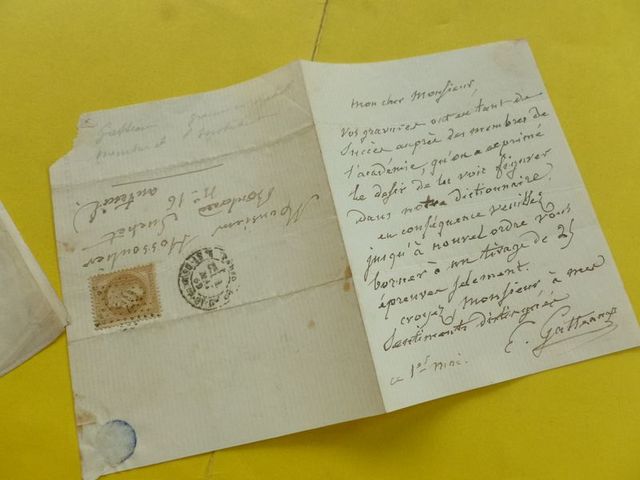 mon cher Monsieur,
vos gravures ont eu tant de
succès auprès des membres de
l'académie, qu'on a exprimé
le désir de les voir figurer
dans notre dictionnaire.
en conséquence veuillez
jusqu'à nouvel ordre vous
borner à un tirage de 25
épreuves seulement.
croyez monsieur à mes
sentiments distingués
E. Gatteaux
ce 1er mai.
Monsieur
Boulevard Suchet
n° 16
auteuil
Gatteaux
membre de l'Institut